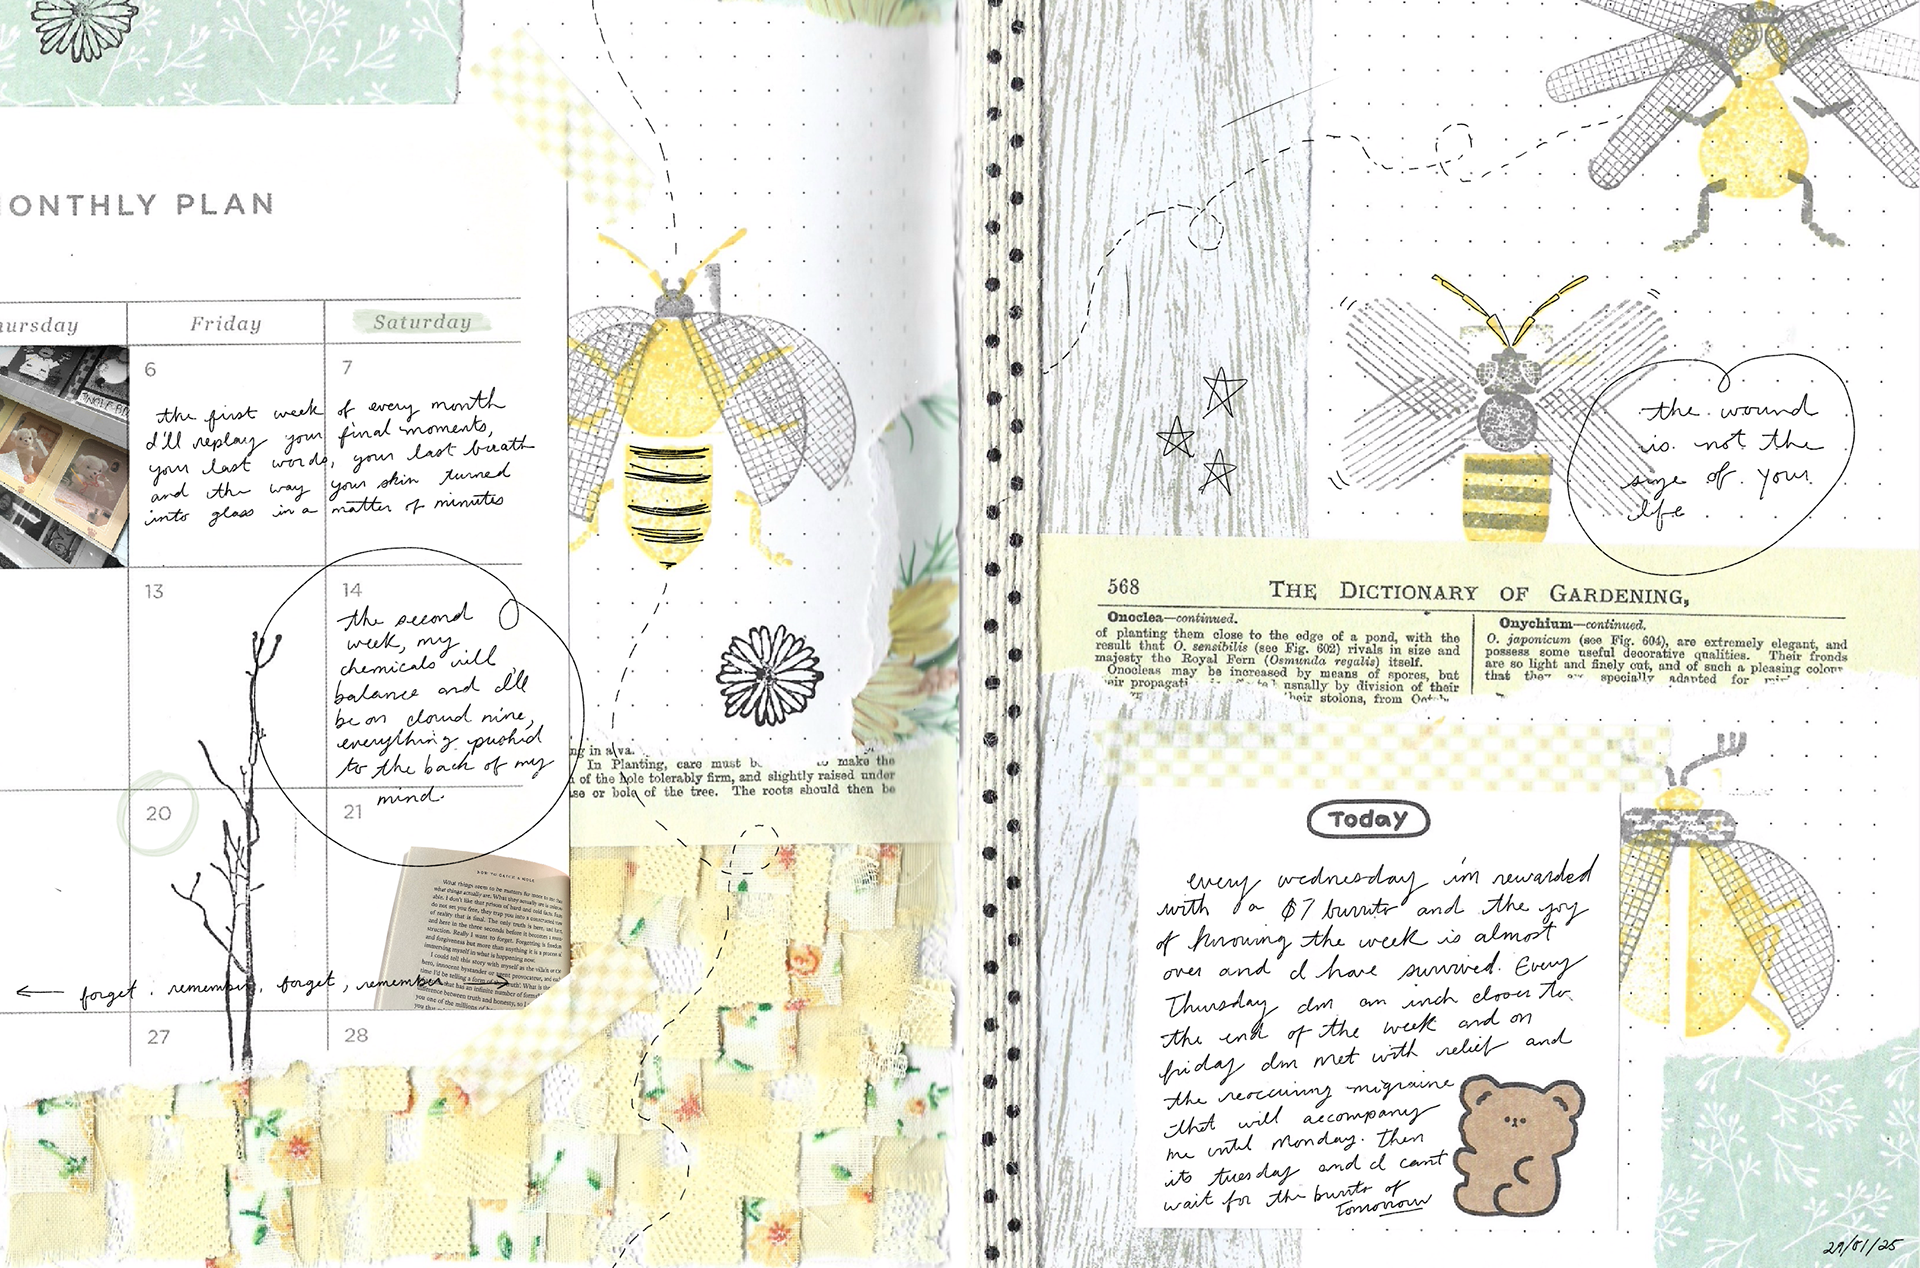 MONTHLY PLAN
hursday
Friday
Saturday
6
7
the first week of every month
I'll replay your final moments,
your last words, your last breath
and the way your skin turned
into glass in a matter of minutes
13
14
the second
week, my
chemicals will
balance and I'll
be on cloud nine,
everything pushed
to the back of my
mind.
20
21
What things seem to be
forget, remember, forget, remember
27
28
ng in a va.
In Planting, care must b to make the
of the hole tolerably firm, and slightly raised under
se or bole of the tree. The roots should then be
the wound
is not the
size of your
life
568 THE DICTIONARY OF GARDENING,
Onoclea—continued.
of planting them close to the edge of a pond, with the
result that O. sensibilis (see Fig. 602) rivals in size and
majesty the Royal Fern (Osmunda regalis) itself.
Onocleas may be increased by means of spores, but
eir propagati usually by division of their
heir stolons, from Octob
Onychium—continued.
O. japonicum (see Fig. 604), are extremely elegant, and
possess some useful decorative qualities. Their fronds
are so light and finely cut, and of such a pleasing colour
that they are specially adapted for
Today
every wednesday im rewarded
with a $7 burrito and the joy
of knowing the week is almost
over and I have survived. Every
Thursday Im an inch closer to
the end of the week and on
friday Im met with relief and
the reoccuring migraine
that will accompany
me until monday. Then
its tuesday and I cant
wait for the burrito of
tomorrow
29/01/25